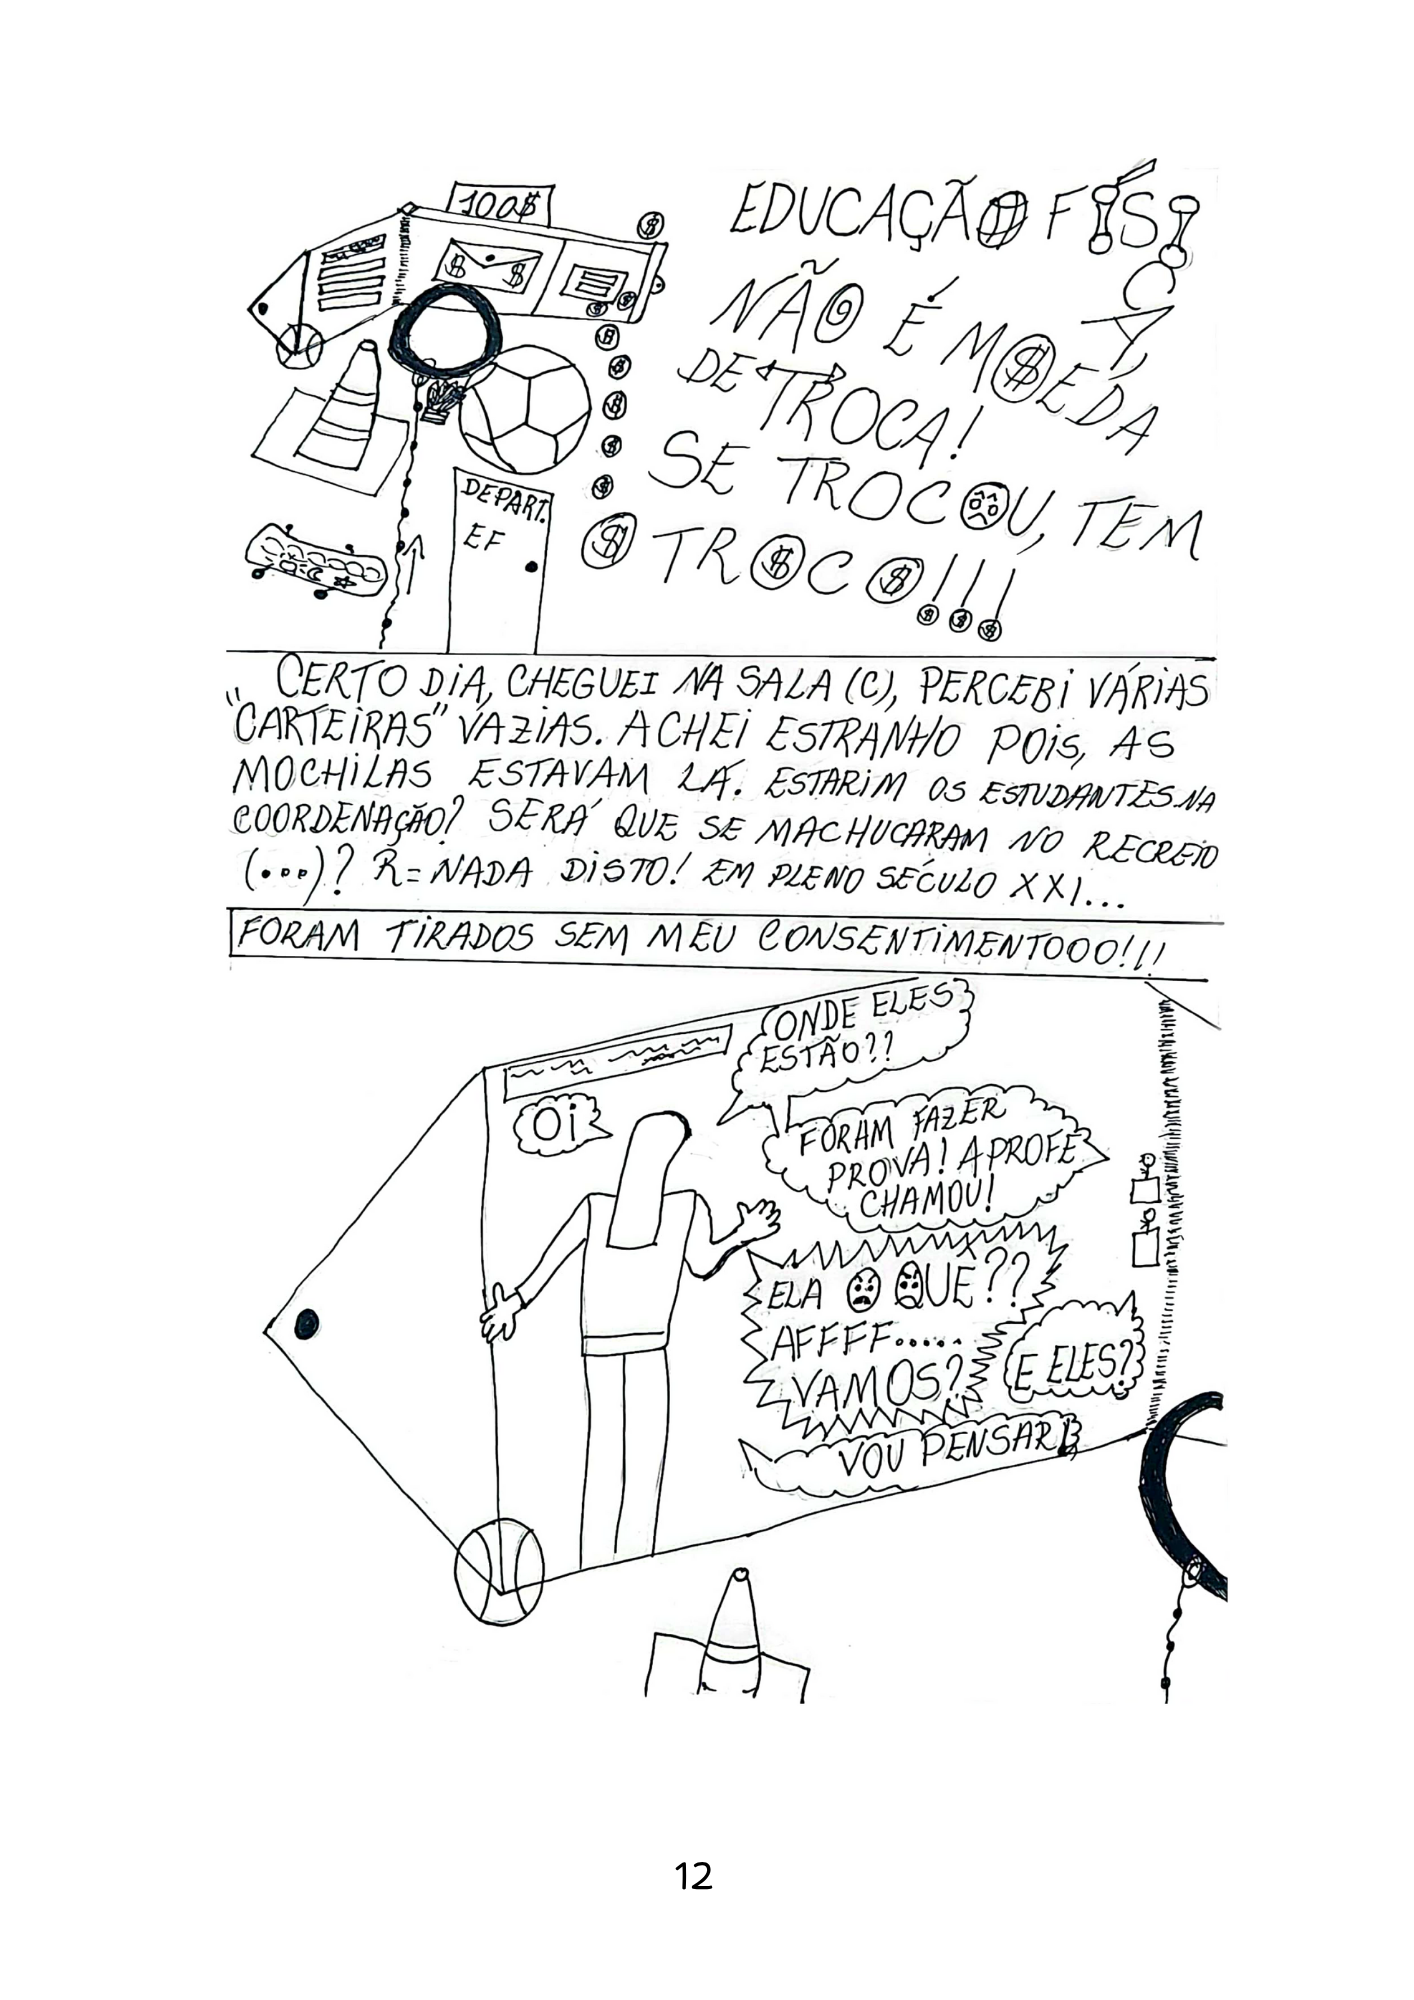 100$
EDUCAÇÃO FÍSICA,
NÃO É MOEDA
DE TROCA!
SE TROCOU, TEM
TROCO!!!
DEPART.
EF
CERTO DIA, CHEGUEI NA SALA (C), PERCEBI VÁRIAS
"CARTEIRAS" VAZIAS. ACHEI ESTRANHO POIS, AS
MOCHILAS ESTAVAM LÁ. ESTARIM OS ESTUDANTES NA
COORDENAÇÃO? SERÁ QUE SE MACHUCARAM NO RECREIO
(...)? R= NADA DISTO! EM PLENO SÉCULO XXI...
FORAM TIRADOS SEM MEU CONSENTIMENTOOO!!!
OI
ONDE ELES
ESTÃO??
FORAM FAZER
PROVA! A PROFE
CHAMOU!
ELA O QUÊ??
AFFFF.....
VAMOS?
E ELES?
VOU PENSAR
12